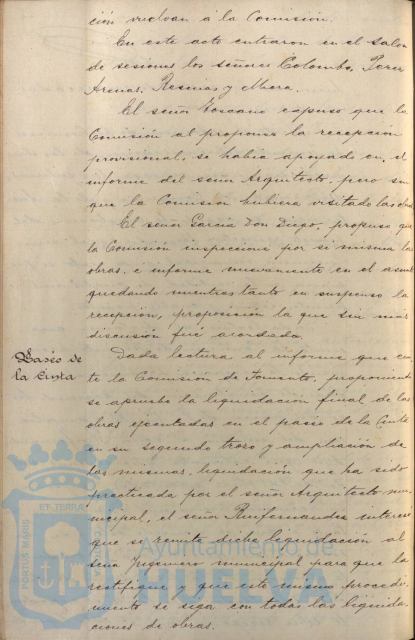 ción vuelvan á la Comisión.
En este acto entraron en el salon
de sesiones los señores Colombo, Perez
Arenas, Resmas y Mora.
El señor Toscano expuso que la
Comisión al proponer la recepcion
provisional, se habia apoyado en el
informe del señor Arquitecto, pero sin
que la Comisión hubiera visitado las obras
El señor García Don Diego, propuso que
la Comisión inspeccione por si misma las
obras, e informe nuevamente en el asunto
quedando mientras tanto en suspenso la
recepcion, proposición la que sin más
discusión fué acordada.
Paseo de
la Cinta
Dada lectura al informe que emi
te la Comisión de Fomento, proponiendo
se apruebe la liquidación final de las
obras ejecutadas en el paseo de la Cinta
en su segundo trozo y ampliación de
las mismas, liquidación que ha sido
practicada por el señor Arquitecto mu
nicipal, el señor Ruifernandez interesó
que se remita dicha liquidación al
señor Ingeniero municipal para que la
rectifique y que este mismo procedi
miento se siga con todas las liquida
ciones de obras.
PORTUS MARIS
ET TERRAE
Ayuntamiento de
HUELVA